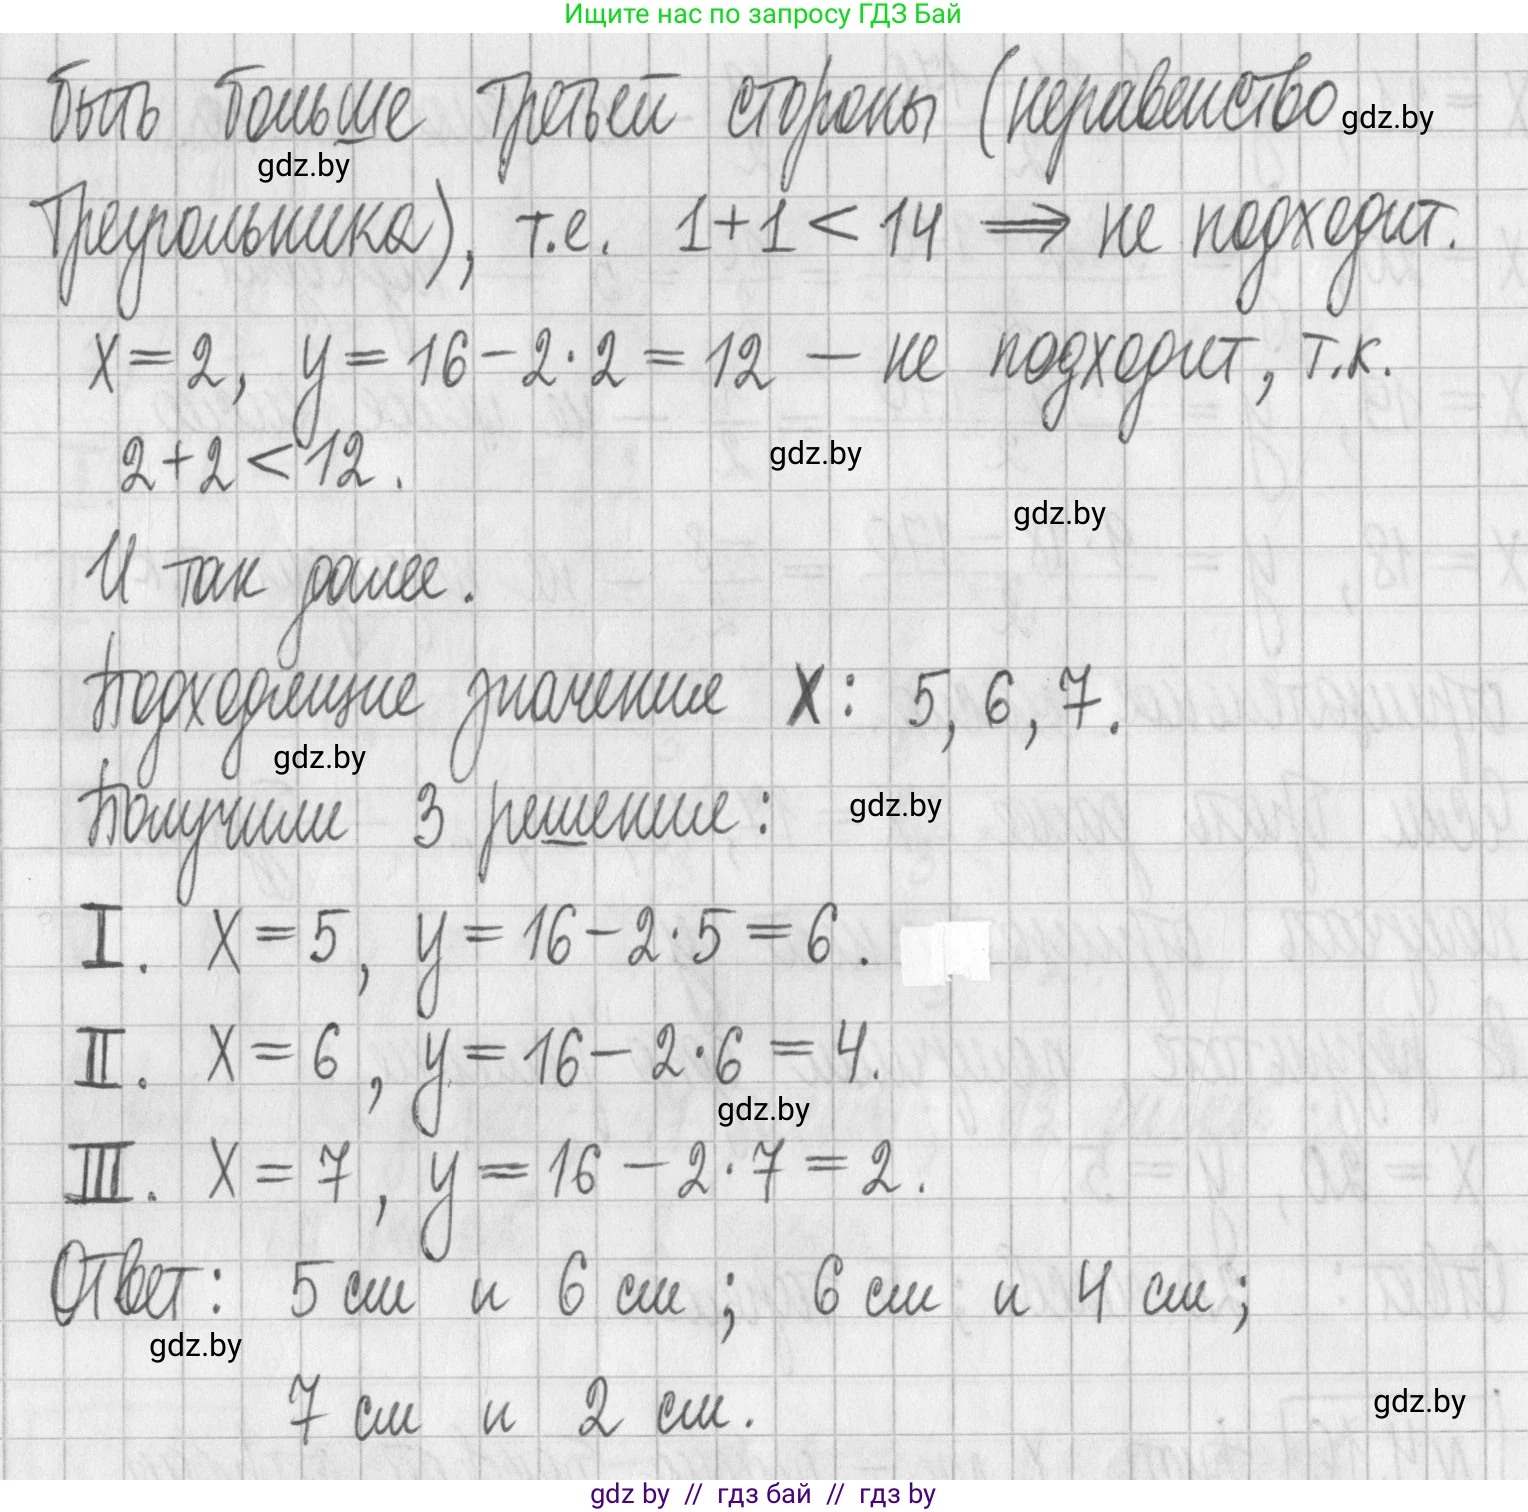 Ищите нас по запросу ГДЗ Бай
быть больше третьей стороны (неравенство gdz.by
gdz.by
треугольника), т.е. 1+1<14 ⟹ не подходит.
x=2, y=16-2·2=12 — не подходит, т.к.
2+2<12. gdz.by
gdz.by
И так далее.
Подходящие значения x: 5, 6, 7.
gdz.by
Получили 3 решения: gdz.by
I. x=5, y=16-2·5=6.
II. x=6, y=16-2·6=4.
gdz.by
III. x=7, y=16-2·7=2.
Ответ: 5 см и 6 см; 6 см и 4 см;
gdz.by
7 см и 2 см. gdz.by
gdz by // гдз бай // гдз by